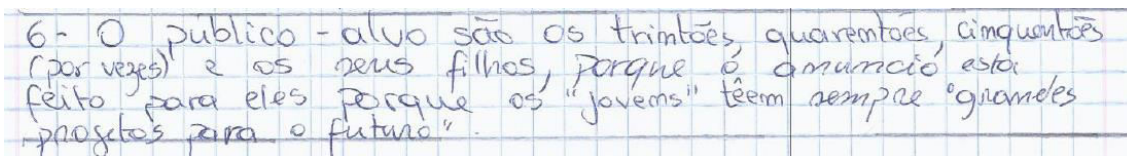 6- O público-alvo são os trimtões, quaremtões, cimquentões
(por vezes) e os seus filhos, porque o amumcio está
feito para eles porque os "jovems" têem sempre "gramdes
projetos para o futuro".